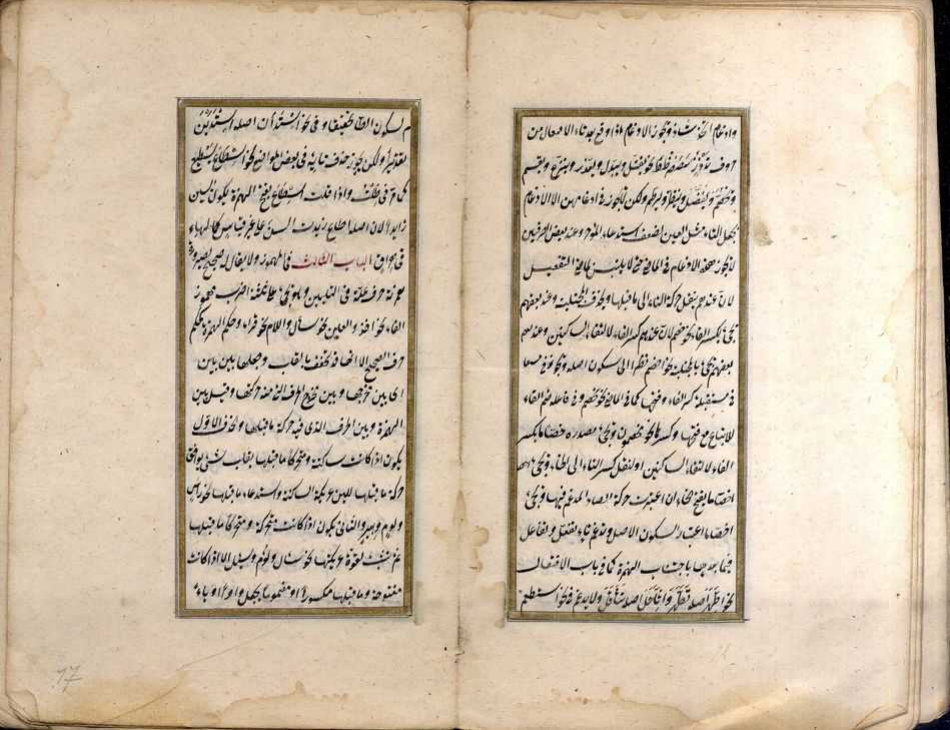 وادغام الحرف شاذ ويجوز الادغام اذا وقع بعد تاء الافتعال من
حروف تدذز سصضطظ نحو يقتل ويبدل ويعذر وينزع ويبسم
ويخصم ويفضل وينظر ولكن لا يجوز في ادغامهن الا الادغام
بجعل التاء مثل العين لضعف استدعاء المؤخر وعند بعض الصرفيين
لا يجوز هذا الادغام في الماضي حتى لا يلتبس بماضي التفعيل
لان عندهم ينقل حركة التاء الى ما قبلها ويحذف المجتلبة وعند بعضهم
يجئ بكسر الفاء نحو خصم لان عندهم كسر الفاء لالتقاء الساكنين وعند
بعضهم يجئ بالمجتلبة نحو اخصم نظرا الى سكون اصله ويجوز
في مستقبله كسر الفاء وفتحها كما في الماضي نحو يخصم وفي فاعله ضم الفاء
للاتباع مع فتحها وكسرها نحو مخصمون ويجئ مصدره خصاما بكسر
الفاء لالتقاء الساكنين او لنقل كسر التاء الى الخاء ويجئ
خصاما بفتح الخاء ان اعتبرت حركة الصاد المدغم فيها ويجئ
اخصاما اعتبارا لسكون الاصل وتدغم تاء تفعل وتفاعل
فيما بعدها باجتلاب الهمزة كما في باب الافتعال
نحو اطهر اصله تطهر واثاقل اصله تثاقل ولا يدغم في نحو استطعم
لسكون الطاء تحقيقا وفي نحو استدان اصله استدين
تقديرا ولكن يجوز حذف تائه في بعض المواضع نحو اسطاع يسطيع
كما مر في ظلت واذا قلت اسطاع بفتح الهمزة يكون السين
زايدا لان اصله اطاع زيدت السين على غير قياس كالهاء
في اهراق الباب الثالث في المهموز ولا يقال له صحيح لصيرورة
همزته حرف علة في التليين وهو يجئ على ثلثة اضرب مهموز
الفاء نحو اخذ والعين نحو سأل واللام نحو قراء وحكم الهمزة كحكم
حرف الصحيح الا انها قد تخفف بالقلب وجعلها بين بين
اى بين مخرجها وبين مخرج الحرف الذي منه حركتها وقيل بين
الهمزة وبين الحرف الذى فيه حركة ما قبلها والحذف الاول
يكون اذا كانت ساكنة ومتحركا ما قبلها بقلب بشئ يوافق
حركة ما قبلها للين عريكة الساكنة واستدعاء ما قبلها نحو راس
ولوم وبير والثانى يكون اذا كانت متحركة ومتحركا ما قبلها
ثم تثبت لقوة عريكتها نحو سأل ولؤم وسئل الا اذا كانت
مفتوحة وما قبلها مكسورا او مضموما يجعل واوا او ياء